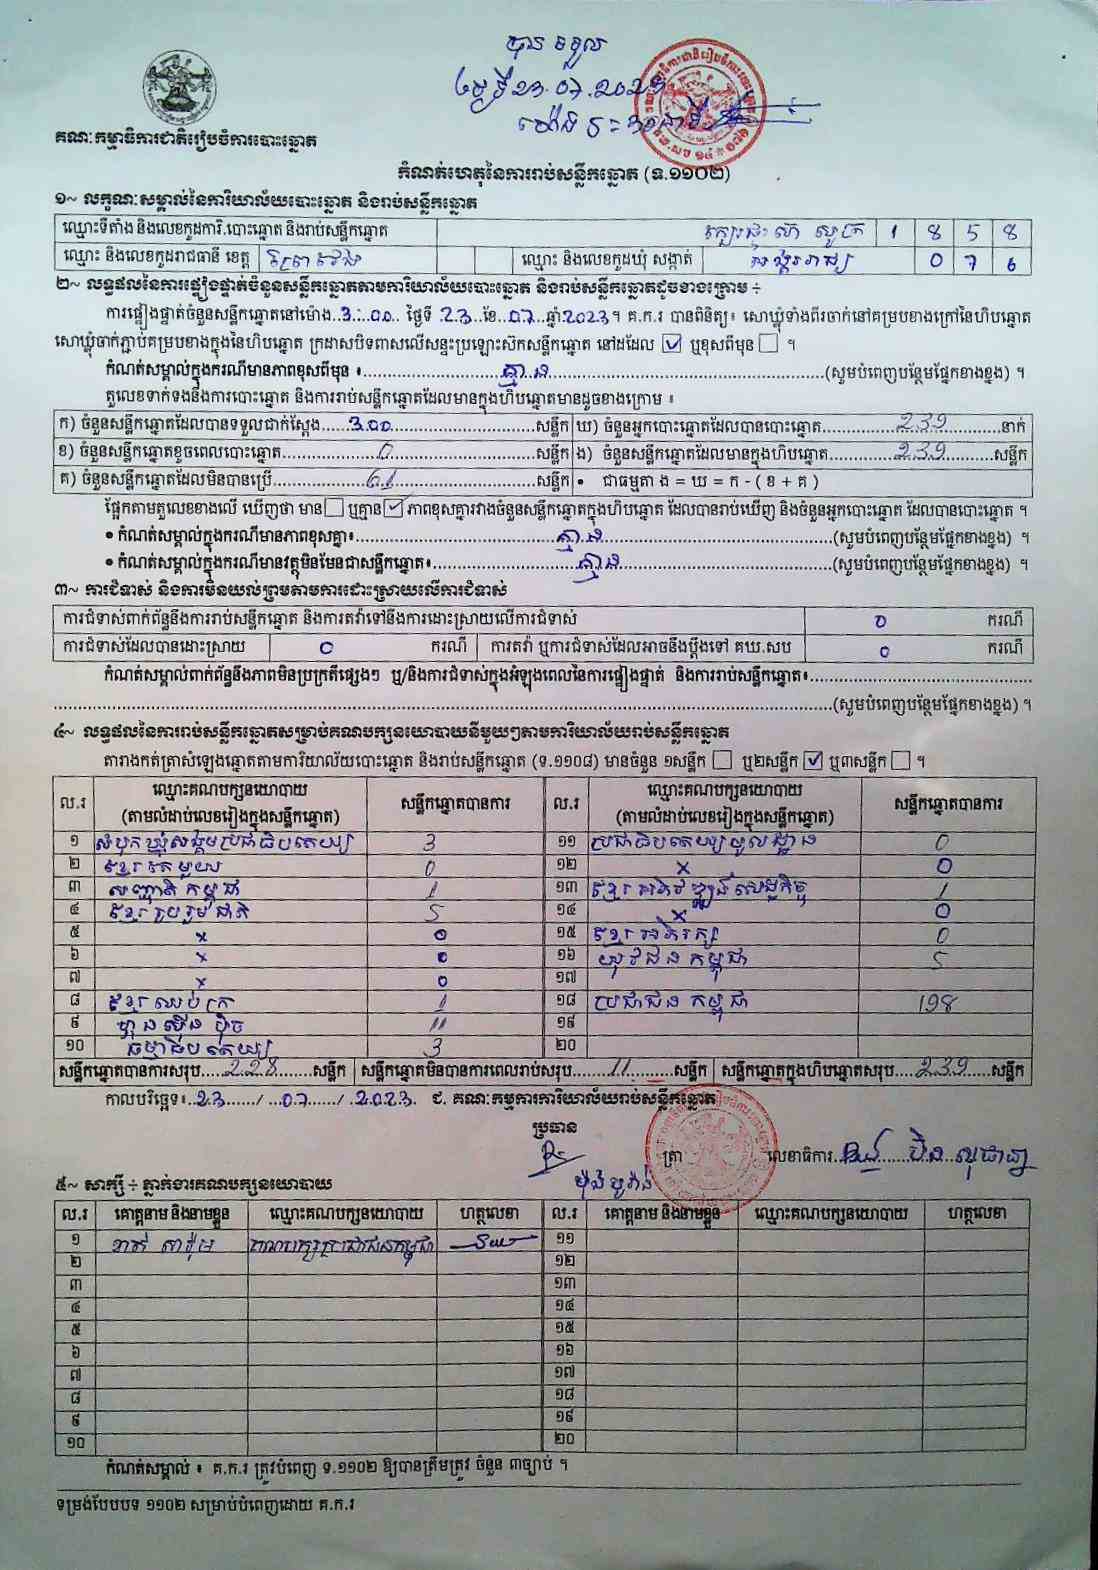 បាន ទទួល
ថ្ងៃទី 23.07.2023
គណៈកម្មាធិការជាតិរៀបចំការបោះឆ្នោត
កំណត់ហេតុនៃការរាប់សន្លឹកឆ្នោត (ទ.១១០២)
១~ លក្ខណៈសម្គាល់នៃការិយាល័យបោះឆ្នោត និងរាប់សន្លឹកឆ្នោត
ឈ្មោះទីតាំង និងលេខកូដការិ.បោះឆ្នោត និងរាប់សន្លឹកឆ្នោត 1 8 5 8
ឈ្មោះ និងលេខកូដរាជធានី ខេត្ត ព្រៃវែង ឈ្មោះ និងលេខកូដឃុំ សង្កាត់ 0 7 6
២~ លទ្ធផលនៃការផ្ទៀងផ្ទាត់ចំនួនសន្លឹកឆ្នោតតាមការិយាល័យបោះឆ្នោត និងរាប់សន្លឹកឆ្នោតដូចខាងក្រោម ÷
ការផ្ទៀងផ្ទាត់ចំនួនសន្លឹកឆ្នោតនៅម៉ោង..3:00.. ថ្ងៃទី .23..ខែ..07..ឆ្នាំ.2023។ គ.ក.រ បានពិនិត្យ៖ សោឃ្លុំទាំងពីរចាក់នៅគម្របខាងក្រៅនៃហិបឆ្នោត
សោឃ្លុំចាក់ភ្ជាប់គម្របខាងក្នុងនៃហិបឆ្នោត ក្រដាសបិទពាសលើសន្ទះប្រឡោះស៊កសន្លឹកឆ្នោត នៅដដែល ☑ ឬខុសពីមុន ☐ ។
កំណត់សម្គាល់ក្នុងករណីមានភាពខុសពីមុន ៖........គ្មាន........(សូមបំពេញបន្ថែមផ្នែកខាងខ្នង) ។
តួលេខទាក់ទងនឹងការបោះឆ្នោត និងការរាប់សន្លឹកឆ្នោតដែលមានក្នុងហិបឆ្នោតមានដូចខាងក្រោម ៖
ក) ចំនួនសន្លឹកឆ្នោតដែលបានទទួលជាក់ស្តែង.....300.....សន្លឹក ឃ) ចំនួនអ្នកបោះឆ្នោតដែលបានបោះឆ្នោត.....239.....នាក់
ខ) ចំនួនសន្លឹកឆ្នោតខូចពេលបោះឆ្នោត.....0.....សន្លឹក ង) ចំនួនសន្លឹកឆ្នោតដែលមានក្នុងហិបឆ្នោត.....239.....សន្លឹក
គ) ចំនួនសន្លឹកឆ្នោតដែលមិនបានប្រើ.....61.....សន្លឹក • ជាធម្មតា ង = ឃ = ក - ( ខ + គ )
ផ្អែកតាមតួលេខខាងលើ ឃើញថា មាន ☐ ឬគ្មាន ☑ ភាពខុសគ្នារវាងចំនួនសន្លឹកឆ្នោតក្នុងហិបឆ្នោត ដែលបានរាប់ឃើញ និងចំនួនអ្នកបោះឆ្នោត ដែលបានបោះឆ្នោត ។
• កំណត់សម្គាល់ក្នុងករណីមានភាពខុសគ្នា៖........គ្មាន........(សូមបំពេញបន្ថែមផ្នែកខាងខ្នង) ។
• កំណត់សម្គាល់ក្នុងករណីមានវត្ថុមិនមែនជាសន្លឹកឆ្នោត៖........គ្មាន........(សូមបំពេញបន្ថែមផ្នែកខាងខ្នង) ។
៣~ ការជំទាស់ និងការមិនយល់ព្រមតាមការដោះស្រាយលើការជំទាស់
ការជំទាស់ពាក់ព័ន្ធនឹងការរាប់សន្លឹកឆ្នោត និងការតវ៉ាទៅនឹងការដោះស្រាយលើការជំទាស់ 0 ករណី
ការជំទាស់ដែលបានដោះស្រាយ 0 ករណី ការតវ៉ា ឬការជំទាស់ដែលអាចនឹងប្តឹងទៅ គឃ.សប 0 ករណី
កំណត់សម្គាល់ពាក់ព័ន្ធនឹងភាពមិនប្រក្រតីផ្សេងៗ ឬ/និងការជំទាស់ក្នុងអំឡុងពេលនៃការផ្ទៀងផ្ទាត់ និងការរាប់សន្លឹកឆ្នោត៖........
........(សូមបំពេញបន្ថែមផ្នែកខាងខ្នង) ។
៤~ លទ្ធផលនៃការរាប់សន្លឹកឆ្នោតសម្រាប់គណបក្សនយោបាយនីមួយៗតាមការិយាល័យរាប់សន្លឹកឆ្នោត
តារាងកត់ត្រាសំឡេងឆ្នោតតាមការិយាល័យបោះឆ្នោត និងរាប់សន្លឹកឆ្នោត (ទ.១១០៨) មានចំនួន ១សន្លឹក ☐ ឬ២សន្លឹក ☑ ឬ៣សន្លឹក ☐ ។
ល.រ ឈ្មោះគណបក្សនយោបាយ (តាមលំដាប់លេខរៀងក្នុងសន្លឹកឆ្នោត) សន្លឹកឆ្នោតបានការ ល.រ ឈ្មោះគណបក្សនយោបាយ (តាមលំដាប់លេខរៀងក្នុងសន្លឹកឆ្នោត) សន្លឹកឆ្នោតបានការ
១ សំបុកឃ្មុំសង្គមប្រជាធិបតេយ្យ 3 ១១ ប្រជាធិបតេយ្យមូលដ្ឋាន 0
២ ខ្មែរតែមួយ 0 ១២ x 0
៣ សញ្ជាតិកម្ពុជា 1 ១៣ ខ្មែរអភិវឌ្ឍន៍សេដ្ឋកិច្ច 1
៤ ខ្មែររួបរួមជាតិ 5 ១៤ x 0
៥ x 0 ១៥ ខ្មែរអភិរក្ស 0
៦ x 0 ១៦ យុវជនកម្ពុជា 5
៧ x 0 ១៧
៨ ខ្មែរឈប់ក្រ 1 ១៨ ប្រជាជនកម្ពុជា 198
៩ ហ្វ៊ុនស៊ិនប៉ិច 11 ១៩
១០ ធម្មាធិបតេយ្យ 3 ២០
សន្លឹកឆ្នោតបានការសរុប....228....សន្លឹក សន្លឹកឆ្នោតមិនបានការពេលរាប់សរុប....11....សន្លឹក សន្លឹកឆ្នោតក្នុងហិបឆ្នោតសរុប....239....សន្លឹក
កាលបរិច្ឆេទ៖..23../..07../..2023. ជ. គណៈកម្មការការិយាល័យរាប់សន្លឹកឆ្នោត
ប្រធាន
ត្រា លេខាធិការ
៥~ សាក្សី ÷ ភ្នាក់ងារគណបក្សនយោបាយ
ល.រ គោត្តនាម និងនាមខ្លួន ឈ្មោះគណបក្សនយោបាយ ហត្ថលេខា ល.រ គោត្តនាម និងនាមខ្លួន ឈ្មោះគណបក្សនយោបាយ ហត្ថលេខា
១ គណបក្សប្រជាជនកម្ពុជា ១១
២ ១២
៣ ១៣
៤ ១៤
៥ ១៥
៦ ១៦
៧ ១៧
៨ ១៨
៩ ១៩
១០ ២០
កំណត់សម្គាល់ ៖ គ.ក.រ ត្រូវបំពេញ ទ.១១០២ ឱ្យបានត្រឹមត្រូវ ចំនួន ៣ច្បាប់ ។
ទម្រង់បែបបទ ១១០២ សម្រាប់បំពេញដោយ គ.ក.រ